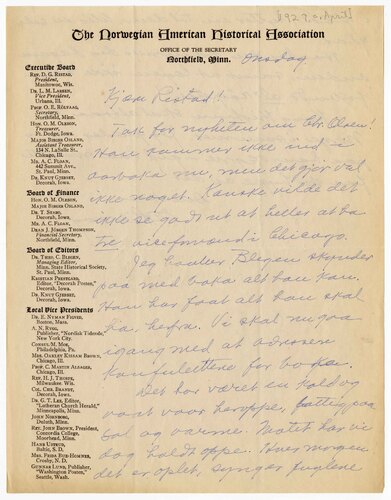 [1929, April]
The Norwegian American Historical Association
OFFICE OF THE SECRETARY
Northfield, Minn.
Onsdag
Executive Board
REV. D. G. RISTAD,
President,
Manitowoc, Wis.
DR. L. M. LARSEN,
Vice President,
Urbana, Ill.
PROF. O. E. RÖLVAAG,
Secretary,
Northfield, Minn.
HON. O. M. OLESON,
Treasurer,
Ft. Dodge, Iowa.
MAJOR BIRGER OSLAND,
Assistant Treasurer,
134 N. LaSalle St.,
Chicago, Ill.
MR. A. C. FLOAN,
442 Summit Ave.,
St. Paul, Minn.
DR. KNUT GJERSET,
Decorah, Iowa.
Board of Finance
HON. O. M. OLESON,
MAJOR BIRGER OSLAND,
DR. T. STABO,
Decorah, Iowa.
MR. A. C. FLOAN,
DEAN J. JÖRGEN THOMPSON,
Financial Secretary,
Northfield, Minn.
Board of Editors
DR. THEO. C. BLEGEN,
Managing Editor,
Minn. State Historical Society,
St. Paul, Minn.
KRISTIAN PRESTGARD,
Editor, "Decorah Posten",
Decorah, Iowa.
DR. KNUT GJERSET,
Decorah, Iowa.
Local Vice Presidents
DR. E. NYMAN FIGVED,
Boston, Mass.
A. N. RYGG,
Publisher, "Nordisk Tidende",
New York City.
CONSUL M. MOE,
Philadelphia, Pa.
MRS. OAKLEY KISSAM BROWN,
Chicago, Ill.
PROF. C. MARTIN ALSAGER,
Chicago, Ill.
REV. H. J. THORPE,
Milwaukee, Wis.
COL. CHR. BRANDT,
Decorah, Iowa.
DR. G. T. LEE, Editor,
"Lutheran Church Herald",
Minneapolis, Minn.
JOHN NORDBOM,
Duluth, Minn.
REV. JOHN BROWN, President,
Concordia College,
Moorhead, Minn.
HANS USTRUD,
Baltic, S. D.
MRS. FREDA BUE-HOMNES,
Crosby, N. D.
GUNNAR LUND, Publisher,
"Washington Posten",
Seattle, Wash.
Kjære Ristad!
Tak for nyheten om Chr. Olsen!
Han kommer ikke ind i
aarboka nu, men det gjør vel
ikke noget. Kanske vilde det
ikke se godt ut at heller at ha
tre viceformænd i Chicago.
Jeg haaber Blegen skynder
paa med boka alt han kan.
Han har faat alt han skal
ha, herfra. Vi skal nu gaa
igang med at adressere
konvoluttene for boka.
Det har været en kold og
vond vaar heroppe, fattig paa
sol og varme. Motet har vi
dog holdt oppe. Hver morgen
det er oplet, synger fuglene